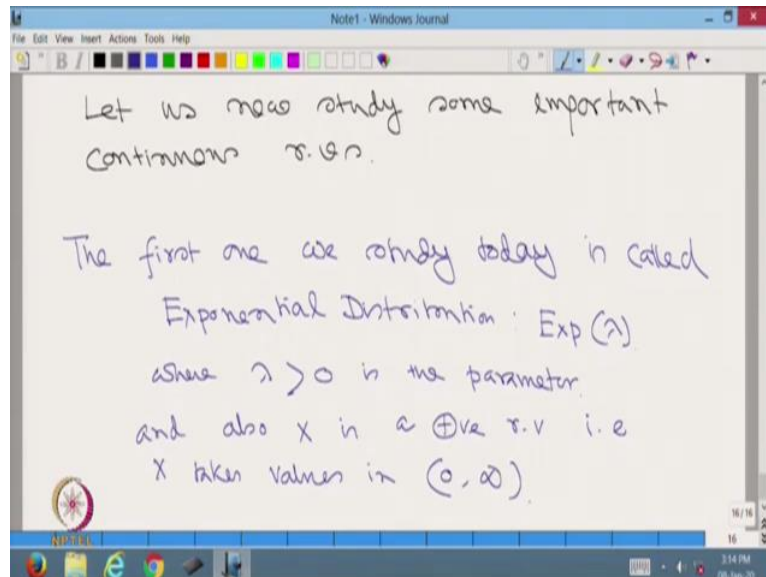 Note1 - Windows Journal
File Edit View Insert Actions Tools Help
B I
Let us now study some important
continuous r.vs.
The first one we study today is called
Exponential Distribution : Exp (λ)
where λ > 0 is the parameter.
and also X is a ⊕ve r.v i.e
X takes values in (0, ∞)
NPTEL
16/16
16
3:14 PM